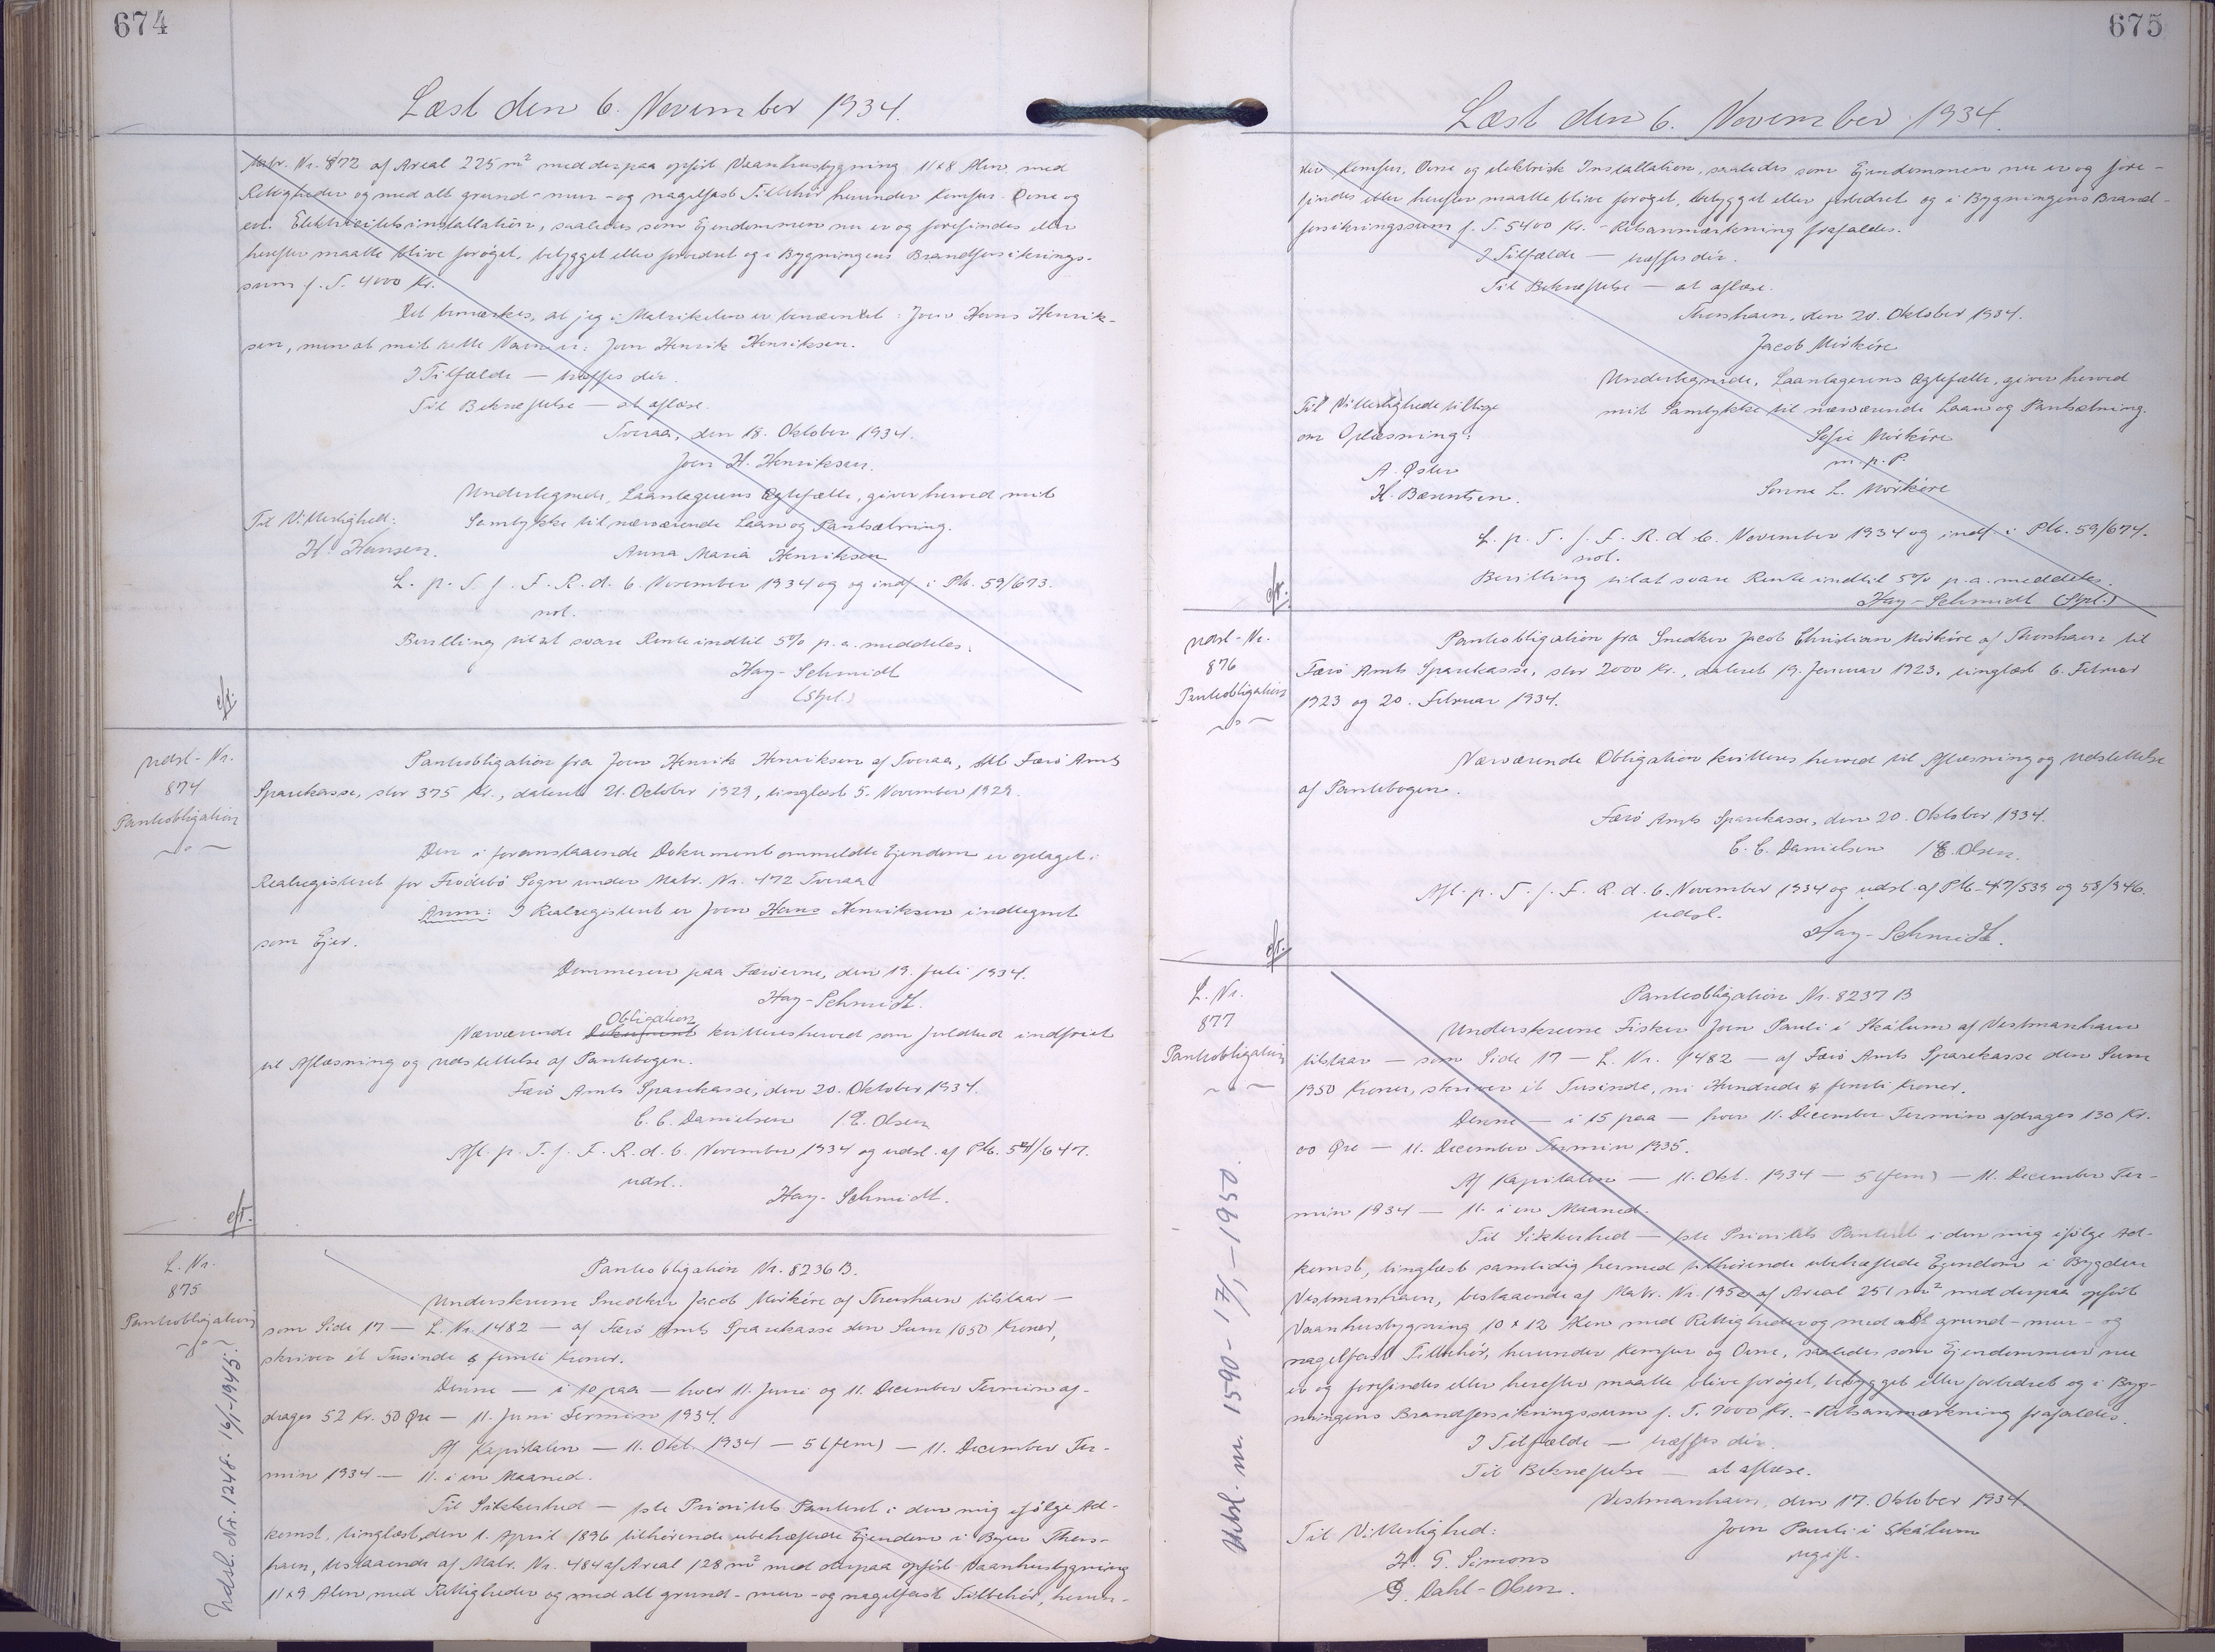 674
Læst den 6. November 1934.
Matr. Nr. 872 af Areal 225 m² med derpaa opført Vaanhusbygning 11x8 Alen med
Rettigheder og med alt grund- mur- og nagelfast Tilbehør herunder Komfur. Ovne og
evt. Elektricitetsinstallation, saaledes som Ejendommen nu er og forefindes eller
herefter maatte blive forøget, bebygget eller forbedret og i Bygningens Brandforsikrings-
sum f. T. 4000 Kr.
Det bemærkes, at jeg i Matrikelen er benævntet: Joen Hans Henrik-
sen, men at mit rette Navn er: Joen Henrik Henriksen.
I Tilfælde — træffes dér.
Til Bekræftelse — at aflæse.
Tveraa, den 18. Oktober 1934.
Joen H. Henriksen.
Undertegnede, Laantagerens Ægtefælle, giver herved mit
Til Vitterlighed: Samtykke til nærværende Laan og Pantsætning.
H. Hansen. Anna Maria Henriksen
L. p. T. f. F. R. d. 6. November 1934 og og indf i Ptb. 59/673.
not.
Bevilling til at svare Rente indtil 5% p. a. meddeles.
Hay-Schmidt
(Spl.)
Udsl-Nr.
874
Pantobligation
Pantobligation fra Joen Henrik Henriksen af Tveraa, til Færø Amts
Sparekasse, stor 375 Kr., dateret 21. October 1929, tinglæst 5. November 1929.
Den i foranstaaende Dokument ommeldte Ejendom er optaget i
Realregisteret for Froðebø Sogn under Matr. Nr. 472 Tveraa
Anm: I Realregisteret er Joen Hans Henriksen indtegnet
som Ejer.
Dommeren paa Færøerne, den 19. Juli 1934.
Hay-Schmidt.
Obligation
Nærværende Dokument kvitteres herved som fuldtud indfriet
til Aflæsning og Udslettelse af Pantebogen.
Færø Amts Sparekasse, den 20. Oktober 1934.
C. C. Danielsen /E. Olsen
Afl. p. T. f. F. R. d. 6. November 1934 og udsl. af Ptb. 54/647.
udsl.
Hay-Schmidt.
L. Nr.
875
Pantobligation
Udsl. Nr. 1248- 16/1-1945.
Pantobligation Nr. 8236 B.
Underskrevne Snedker Jacob Mörköre af Thorshavn tilstaar —
som Side 17 — L. Nr. 1482 — af Færø Amts Sparekasse den Sum 1050 Kroner,
skriver ét Tusinde & femti Kroner.
Denne — i 10 paa — hver 11. Juni og 11. December Termin af-
drages 52 Kr. 50 Øre — 11. Juni Termin 1934.
Af Kapitalen — 11. Okt. 1934 — 5 (fem) — 11. December Ter-
min 1934 — 11. i en Maaned.
Til Sikkerhed — 1ste Prioritets Panteret i den mig ifølge Ad-
komst, tinglæst den 1. April 1896 tilhørende ubehæftede Ejendom i Byen Thors-
havn, bestaaende af Matr. Nr. 484 af Areal 128 m² med derpaa opført Vaanhusbygning
11x9 Alen med Rettigheder og med alt grund- mur- og nagelfast Tilbehør, herun-
675
Læst den 6. November 1934.
der Komfur, Ovne og elektrisk Installation, saaledes som Ejendommen nu er og fore-
findes eller herefter maatte blive forøget, bebygget eller forbedret og i Bygningens Brand-
forsikringssum f. T. 5400 Kr. - Retsanmærkning frafaldes.
I Tilfælde — træffes dér.
Til Bekræftelse — at aflæse.
Thorshavn, den 20. Oktober 1934.
Jacob Mörköre
Undertegnede, Laantagerens Ægtefælle, giver herved
Til Vitterlighed tillige mit Samtykke til nærværende Laan og Pantsætning.
om Oplæsning: Sofie Mörköre
A. Øster m. p. P.
H. Bærentsen. Sonne L. Mörköre
L. p. T. f. F. R. d 6. November 1934 og indf. i Ptb. 59/674.
not.
Bevilling til at svare Rente indtil 5% p. a. meddeles.
Hay-Schmidt (Spl.)
Udsl-Nr.
876
Pantobligation
Pantobligation fra Snedker Jacob Christian Mörköre af Thorshavn til
Færø Amts Sparekasse, stor 2000 Kr., dateret 19. Januar 1923, tinglæst 6. Februar
1923 og 20. Februar 1934.
Nærværende Obligation kvitteres herved til Aflæsning og Udslettelse
af Pantebogen.
Færø Amts Sparekasse, den 20. Oktober 1934.
C. C. Danielsen /E. Olsen.
Afl. p. T. f. F. R. d. 6. November 1934 og udsl. af Ptb-47/539 og 58/346.
udsl.
Hay-Schmidt.
L. Nr.
877
Pantobligation
Udsl. nr. 1590- 17/1-1950.
Pantobligation Nr. 8237 B
Underskrevne Fisker Joen Pauli i Skálum af Vestmanhavn
tilstaar — som Side 17 — L. Nr. 1482 — af Færø Amts Sparekasse den Sum
1950 Kroner, skriver ét Tusinde, ni Hundrede & femti Kroner.
Denne — i 15 paa — hver 11. December Termin afdrages 130 Kr.
00 Øre — 11. December Termin 1935.
Af Kapitalen — 11. Okt. 1934 — 5 (fem) — 11. December Ter-
min 1934 — 11. i en Maaned.
Til Sikkerhed — 1ste Prioritets Panteret i den mig ifølge Ad-
komst, tinglæst samtidig hermed tilhørende ubehæftede Ejendom i Bygden
Vestmanhavn, bestaaende af Matr. Nr. 195e af Areal 251 m² med derpaa opført
Vaanhusbygning 10 x 12 Alen med Rettigheder og med alt grund- mur- og
nagelfast Tilbehør, herunder Komfur og Ovne, saaledes som Ejendommen nu
er og forefindes eller herefter maatte blive forøget, bebygget eller forbedret og i Byg-
ningens Brandforsikringssum f. T. 7000 Kr. - Retsanmærkning frafaldes.
I Tilfælde — træffes dér.
Til Bekræftelse — at aflæse.
Vestmanhavn, den 17. Oktober 1934
Til Vitterlighed: Joen Pauli i Skálum
H. G. Simons ugift.
G. Dahl-Olsen.